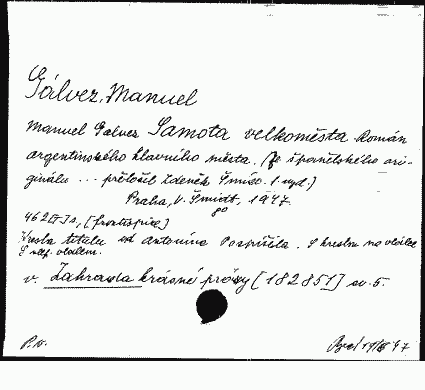 Gálvez, Manuel
Manuel Galvez Samota velkoměsta. Román
argentinského hlavního města. (Ze španělského ori-
ginálu ... přeložil Zdeněk Šmíd. 1. vyd.)
Praha, V. Šmidt, 1947
8°
462 [I] s, [frontispice]
Kresba titulu od Antonína Pospíšila. S kresbou na obálce
v. Zahrada krásné prózy [182851] sv. 5.
P. v.
47